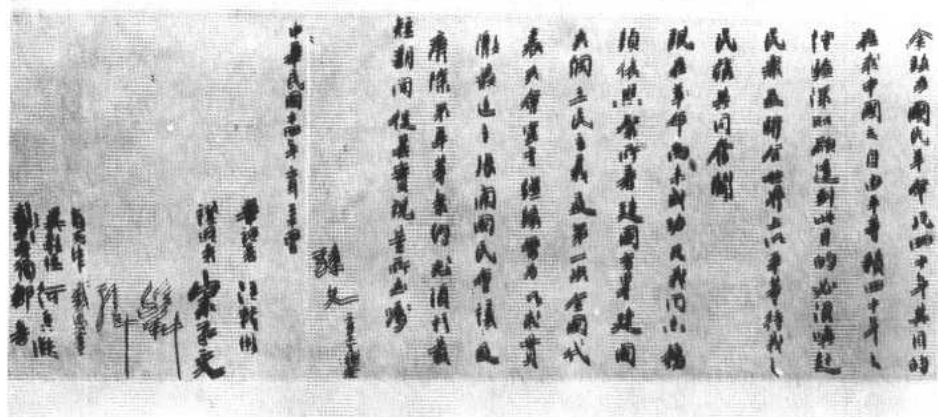 余致力國民革命凡四十年其目的
在求中國之自由平等積四十年之
經驗深知欲達到此目的必須喚起
民衆及聯合世界上以平等待我之
民族共同奮鬥
現在革命尚未成功凡我同志務
須依照余所著建國方略建國
大綱三民主義及第一次全國代
表大會宣言繼續努力以求貫
徹最近主張開國民會議及
廢除不平等條約尤須於最
短期間促其實現是所至囑
孫文
中華民國十四年二月
筆記者 汪精衛
證明者 宋子文
孫科
戴恩賽
吳敬恆 何香凝
鄒魯